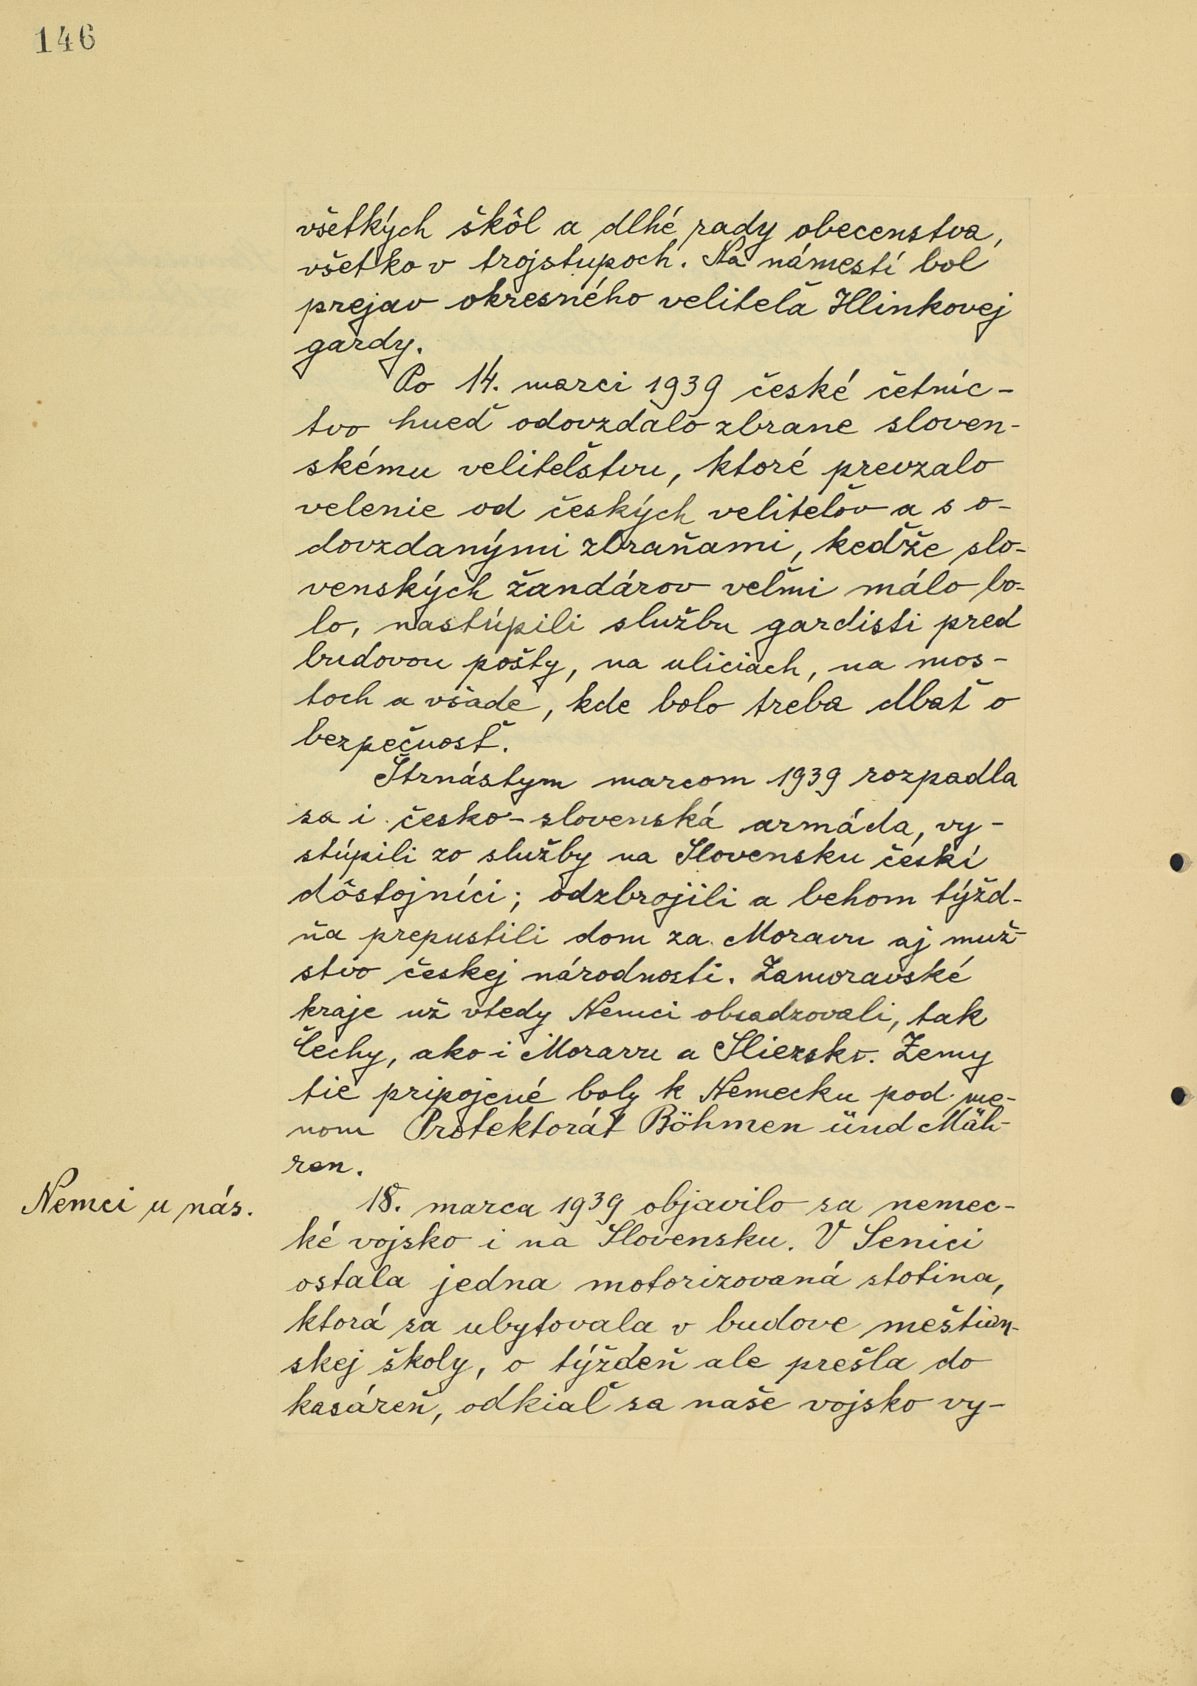 146
všetkých škôl a dlhé rady obecenstva,
všetko v trojstupoch. Na námestí bol
prejav okresného veliteľa Hlinkovej
gardy.
Po 14. marci 1939 české četníc-
tvo hneď odovzdalo zbrane sloven-
skému veliteľstvu, ktoré prevzalo
velenie od českých veliteľov a s o-
dovzdanými zbraňami, keďže slo-
venských žandárov veľmi málo bo-
lo, nastúpili službu gardisti pred
budovou pošty, na uliciach, na mos-
toch a všade, kde bolo treba dbať o
bezpečnosť.
Štrnástym marcom 1939 rozpadla
sa i česko-slovenská armáda, vy-
stúpili zo služby na Slovensku českí
dôstojníci; odzbrojili a behom týžd-
ňa prepustili dom za Moravu aj muž-
stvo českej národnosti. Zamoravské
kraje už vtedy Nemci obsadzovali, tak
Čechy, ako i Moravu a Sliezsko. Zemy
tie pripojené boly k Nemecku pod me-
nom Protektorát Böhmen ünd Mäh-
ren.
Nemci u nás.
18. marca 1939 objavilo sa nemec-
ké vojsko i na Slovensku. V Senici
ostala jedna motorizovaná stotina,
ktorá sa ubytovala v budove meštian-
skej školy, o týždeň ale prešla do
kasáreň, odkiaľ sa naše vojsko vy-